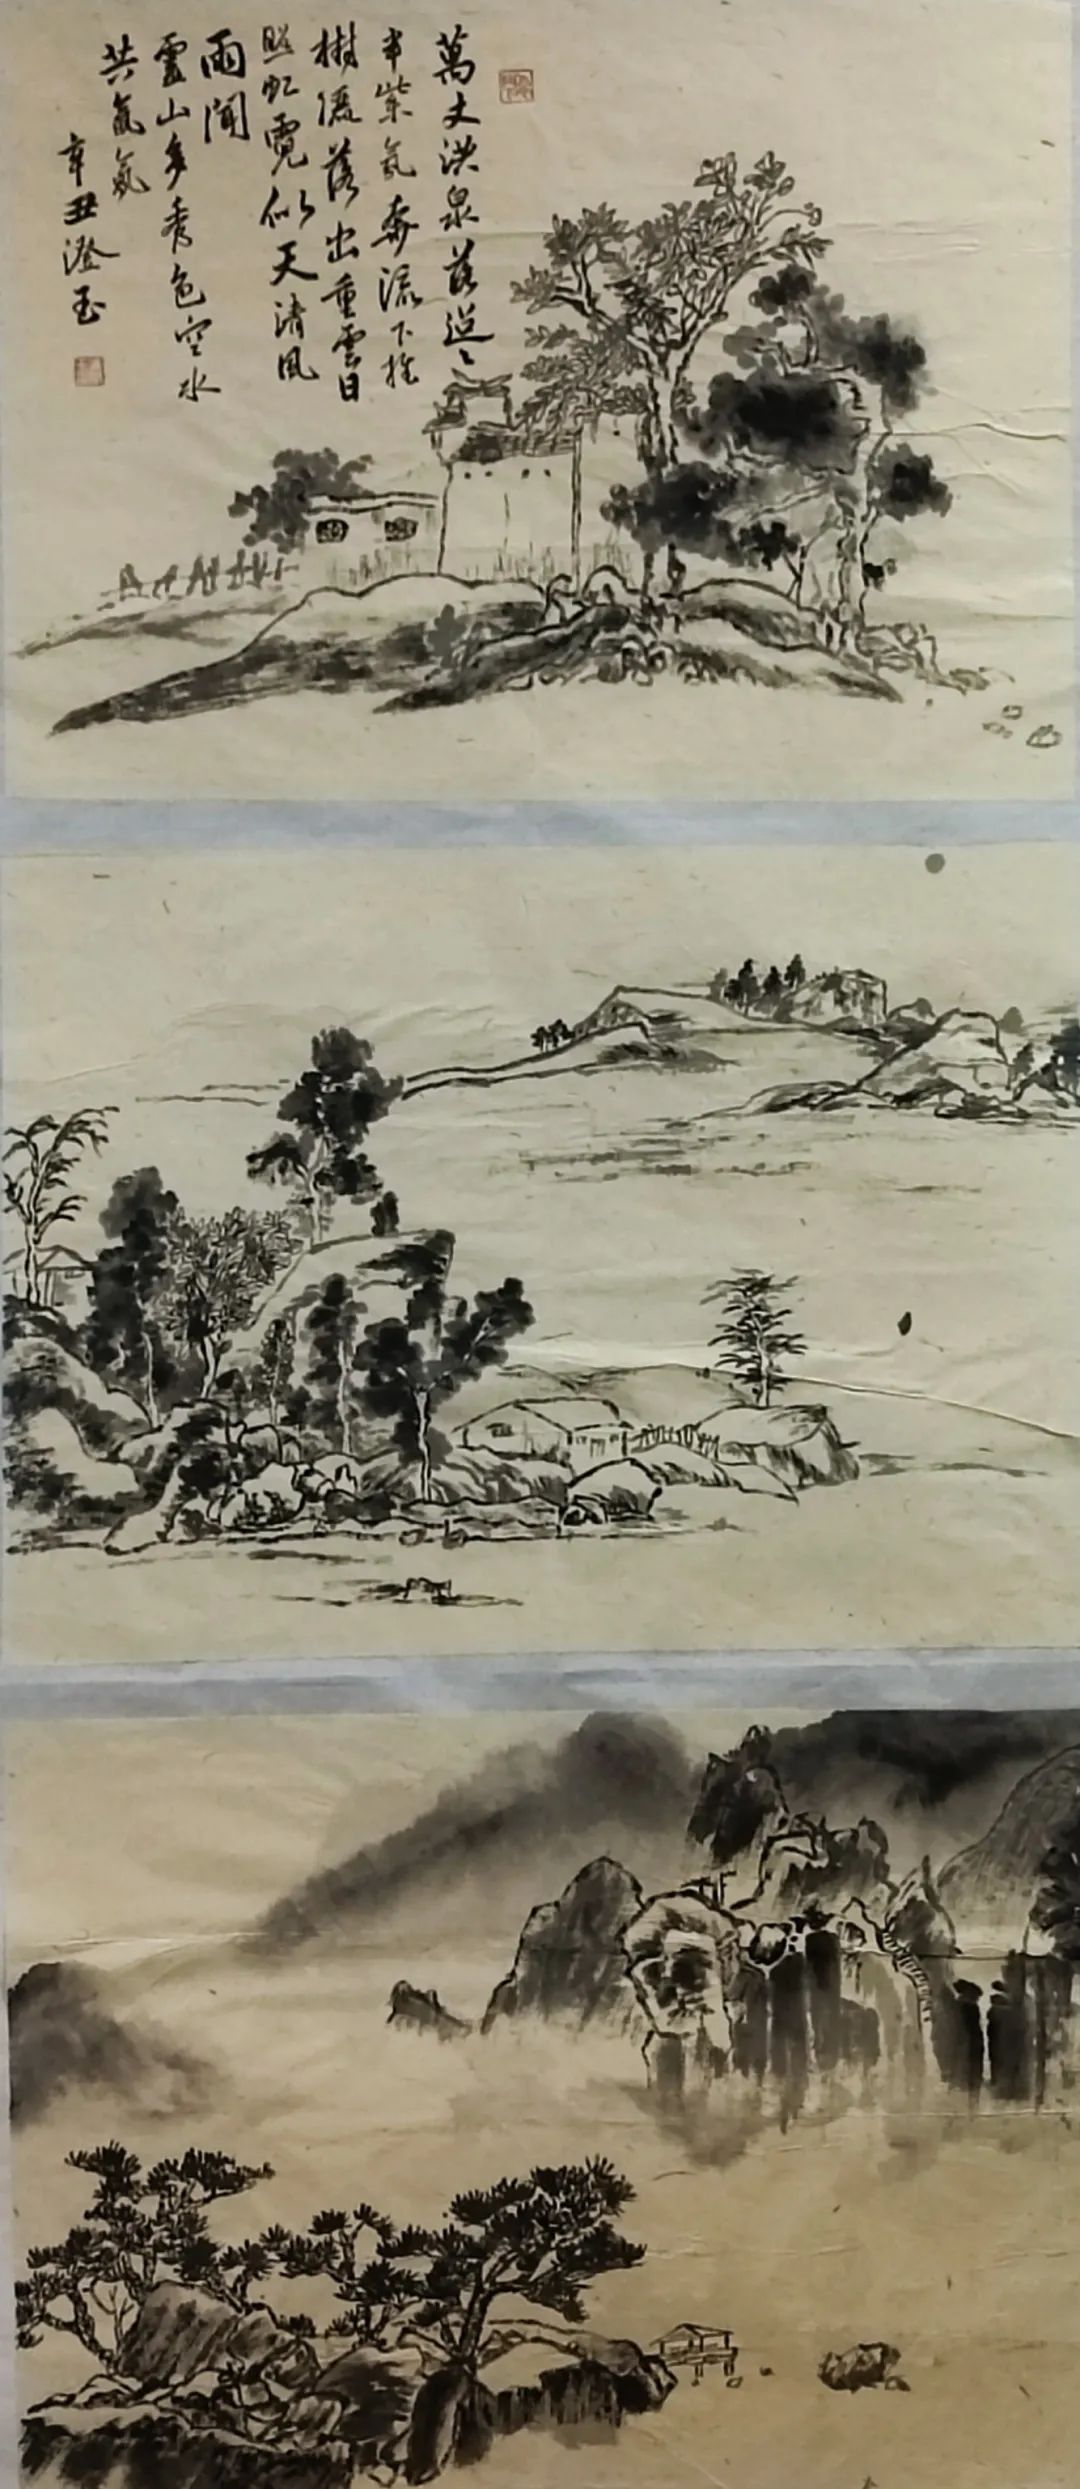 萬丈洪泉落迢〻
半紫氛奔流下雜
樹灑落出重雲日
照虹霓似天清風
雨聞
靈山多秀色空水
共氤氳
辛丑澄玉